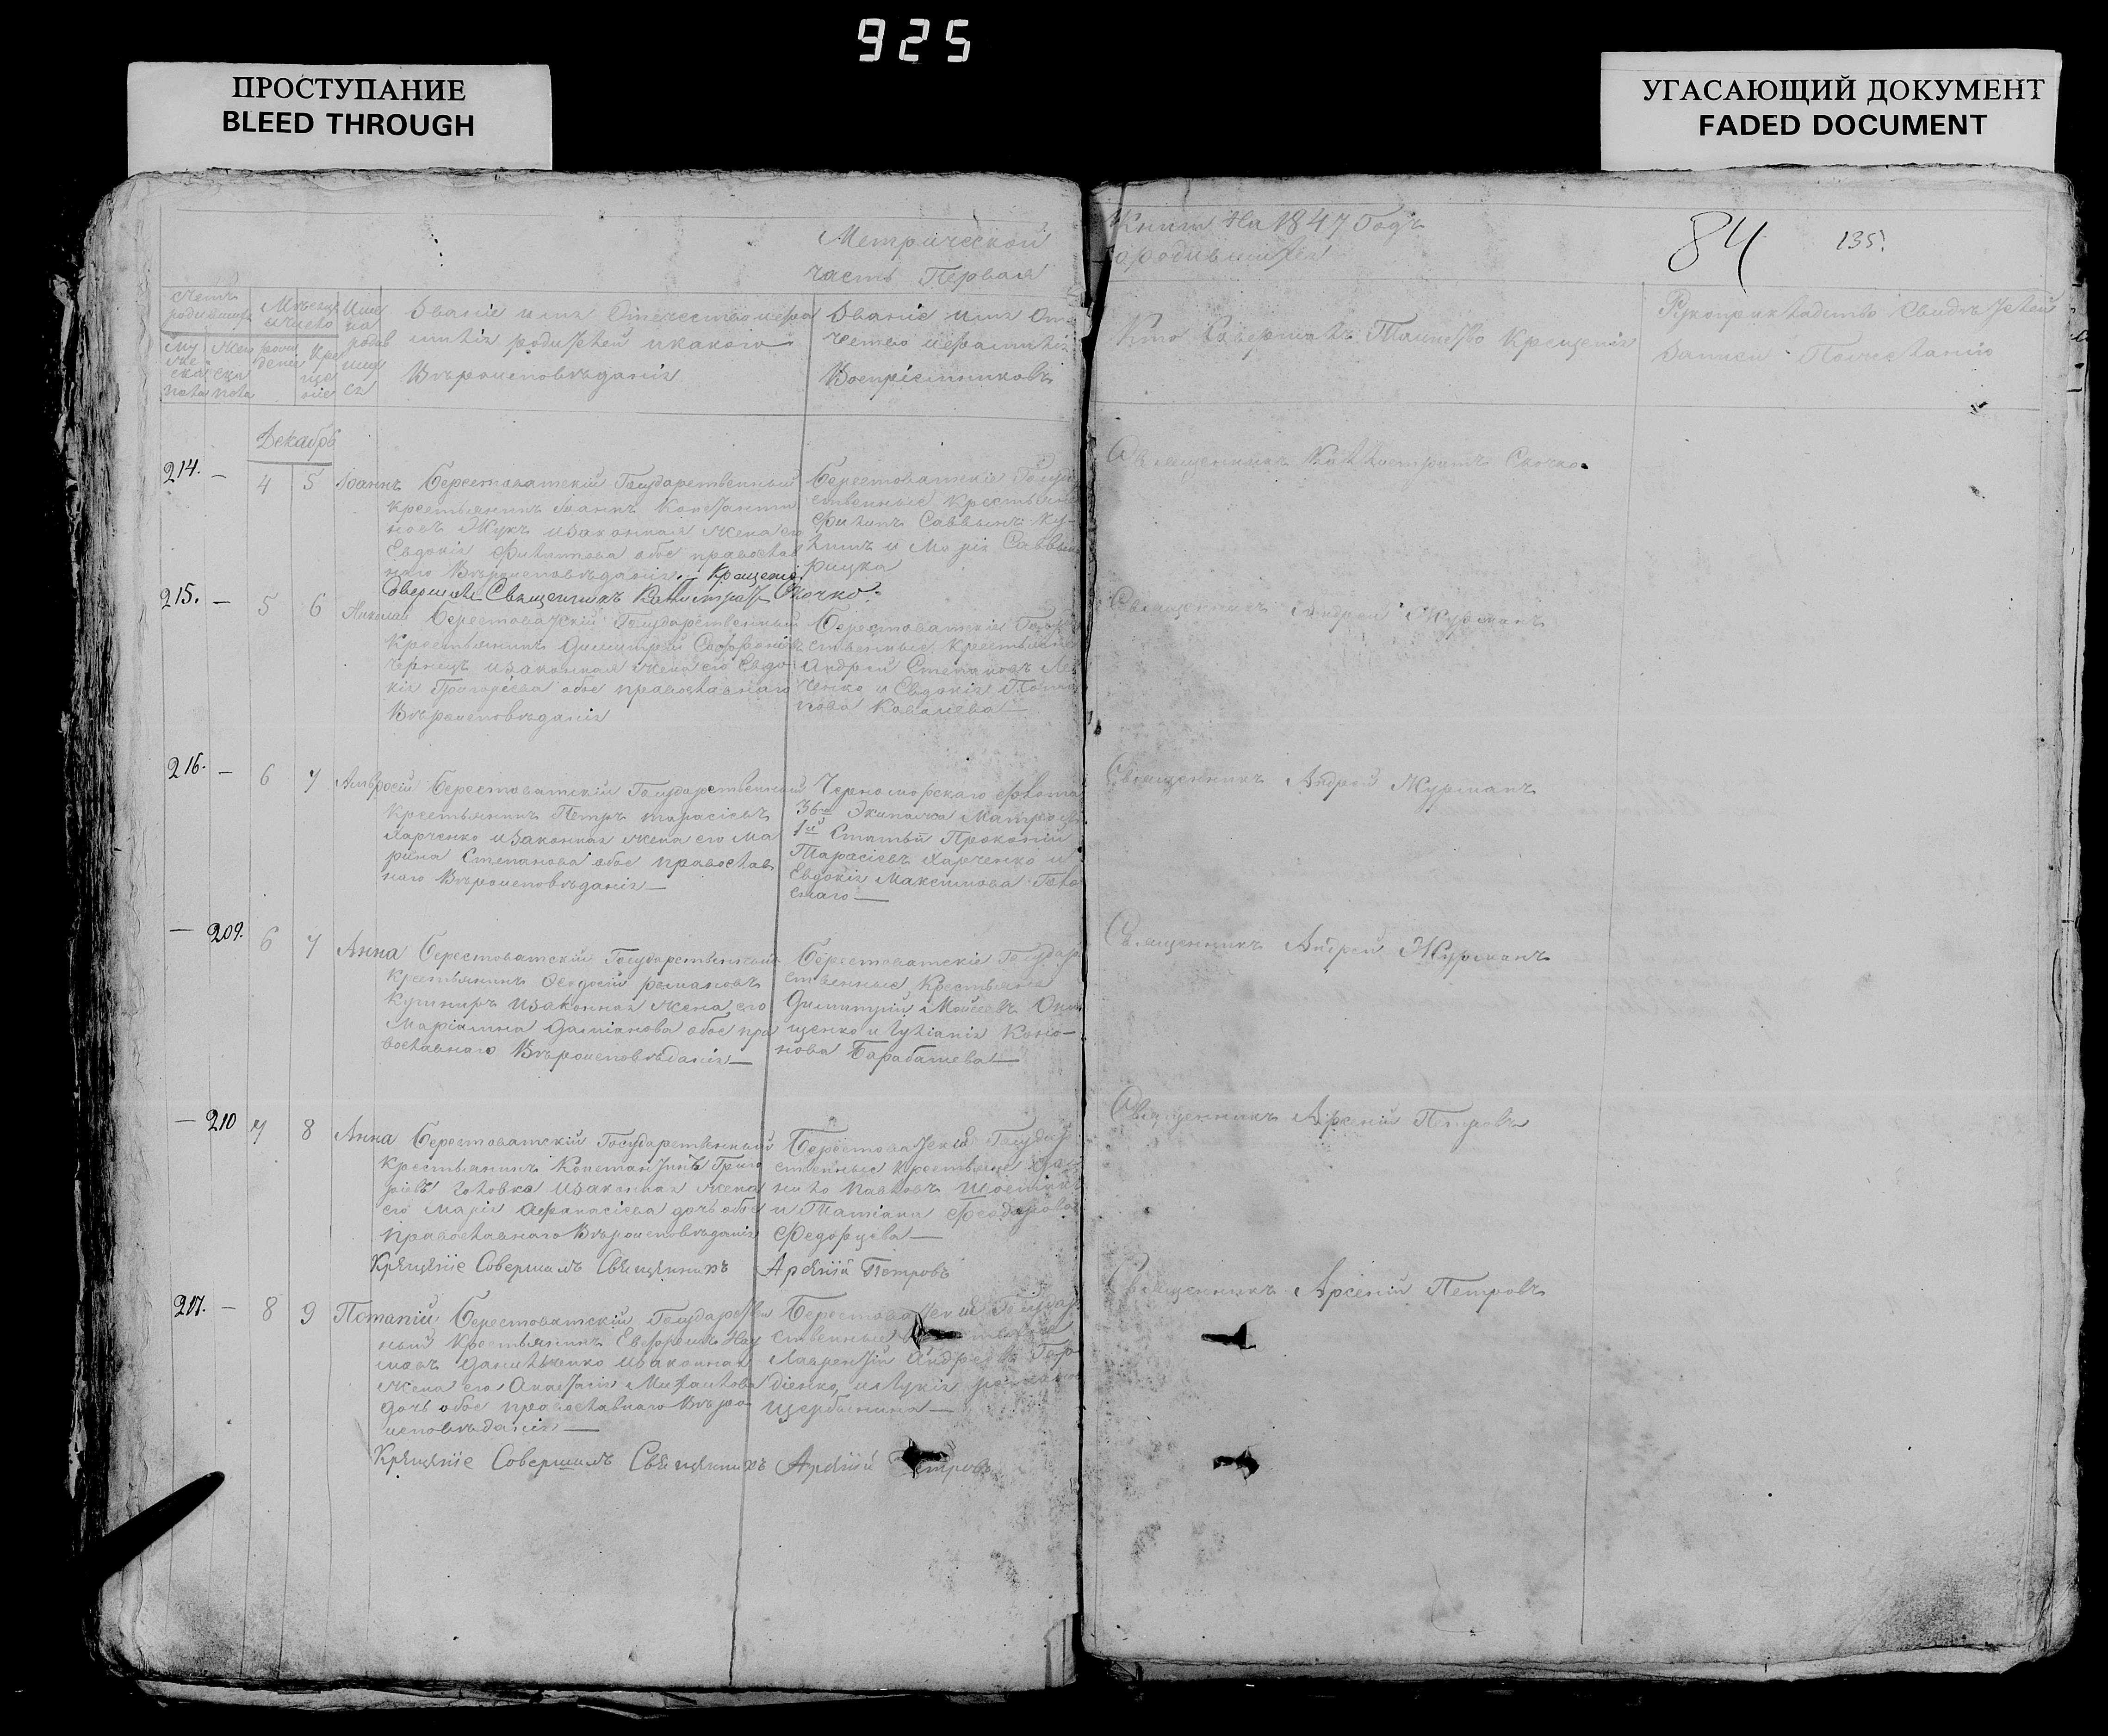 925
ПРОСТУПАНИЕ
BLEED THROUGH
УГАСАЮЩИЙ ДОКУМЕНТ
FADED DOCUMENT
Метрической
часть Первая
Книги На 1847 Годъ
о родившихся
84 135.
Званіе имя Отечество и фа
милія родителей и какого
Вѣроисповѣданія
Званіе имя От
чество и фамилія
Воспріемниковъ
Кто Совершалъ Таинство Крещенія
Рукоприкладство Свидѣтелей
Записи По желанію
Декабрь
214. — 4 5 Іоаннъ Берестоватскій Государственный
крестьянинъ Іоаннъ Константи
новъ Жукъ и законная жена его
Евдокія Филиппова обое православ
наго Вѣроисповѣданія. Крещеніе
Совершалъ Священникъ Каллистратъ Скочко.
Берестоватскіе Госуда
ственные крестьяне
Филипъ Саввинъ
и Марія Саввина
Священникъ Каллистратъ Скочко.
215. — 5 6 Николай Берестоватскій Государственный
Крестьянинъ Димитрій Софроніевъ
Чернецъ и законная жена его Евдо
кія Григоріева обое православнаго
Вѣроисповѣданія
Берестоватскіе Госуда
ственные Крестьяне
Андрей Степановъ
и Евдокія
Ковалева —
Священникъ Андрей Журманъ
216. — 6 7 Амвросій Берестоватскій Государственный
Крестьянинъ Петръ Тарасіевъ
Харченко и законная жена его Ма
рина Степанова обое православ
наго Вѣроисповѣданія —
Черноморскаго флота
36го Экипажа Матросъ
1й Статьи Прокопій
Тарасіевъ Харченко и
Евдокія Максимова
Священникъ Андрей Журманъ
— 209. 6 7 Анна Берестоватскій Государственный
Крестьянинъ Ѳеодосій Романовъ
Кушниръ и законная жена его
Маріамна Даміанова обое пра
вославнаго Вѣроисповѣданія —
Берестоватскіе Государ
ственные Крестьяне
Димитрій Моисеевъ
щенко и Іуліанія Коно-
нова Барабашева —
Священникъ Андрей Журманъ
— 210 7 8 Анна Берестоватскій Государственный
Крестьянинъ Константинъ Григо
ріевъ Головко и законная жена
его Марія Афанасіева дочь обое
православнаго Вѣроисповѣданія
Крещеніе Совершалъ Священникъ Арсеній Петровъ
Берестоватскіе Государ
ственные крестьяне
Павловъ
и Татіана Феодорова
Федорцева —
Священникъ Арсеній Петровъ
217. — 8 9 Потапій Берестоватскій Государствен
ный Крестьянинъ Евфремъ Нау
мовъ Данильченко и законная
жена его Анастасія Михайлова
дочь обое православнаго Вѣро
исповѣданія —
Крещеніе Совершалъ Священникъ Арсеній Петровъ
Берестоватскіе Государ
ственные
Лаврентій Андреевъ Гор
діенко и Лукія
Щербинина —
Священникъ Арсеній Петровъ